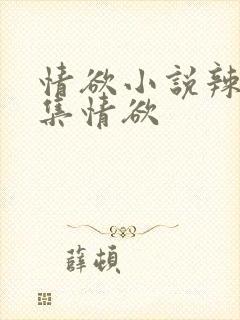 情欲小說辣
集情欲
薛頓